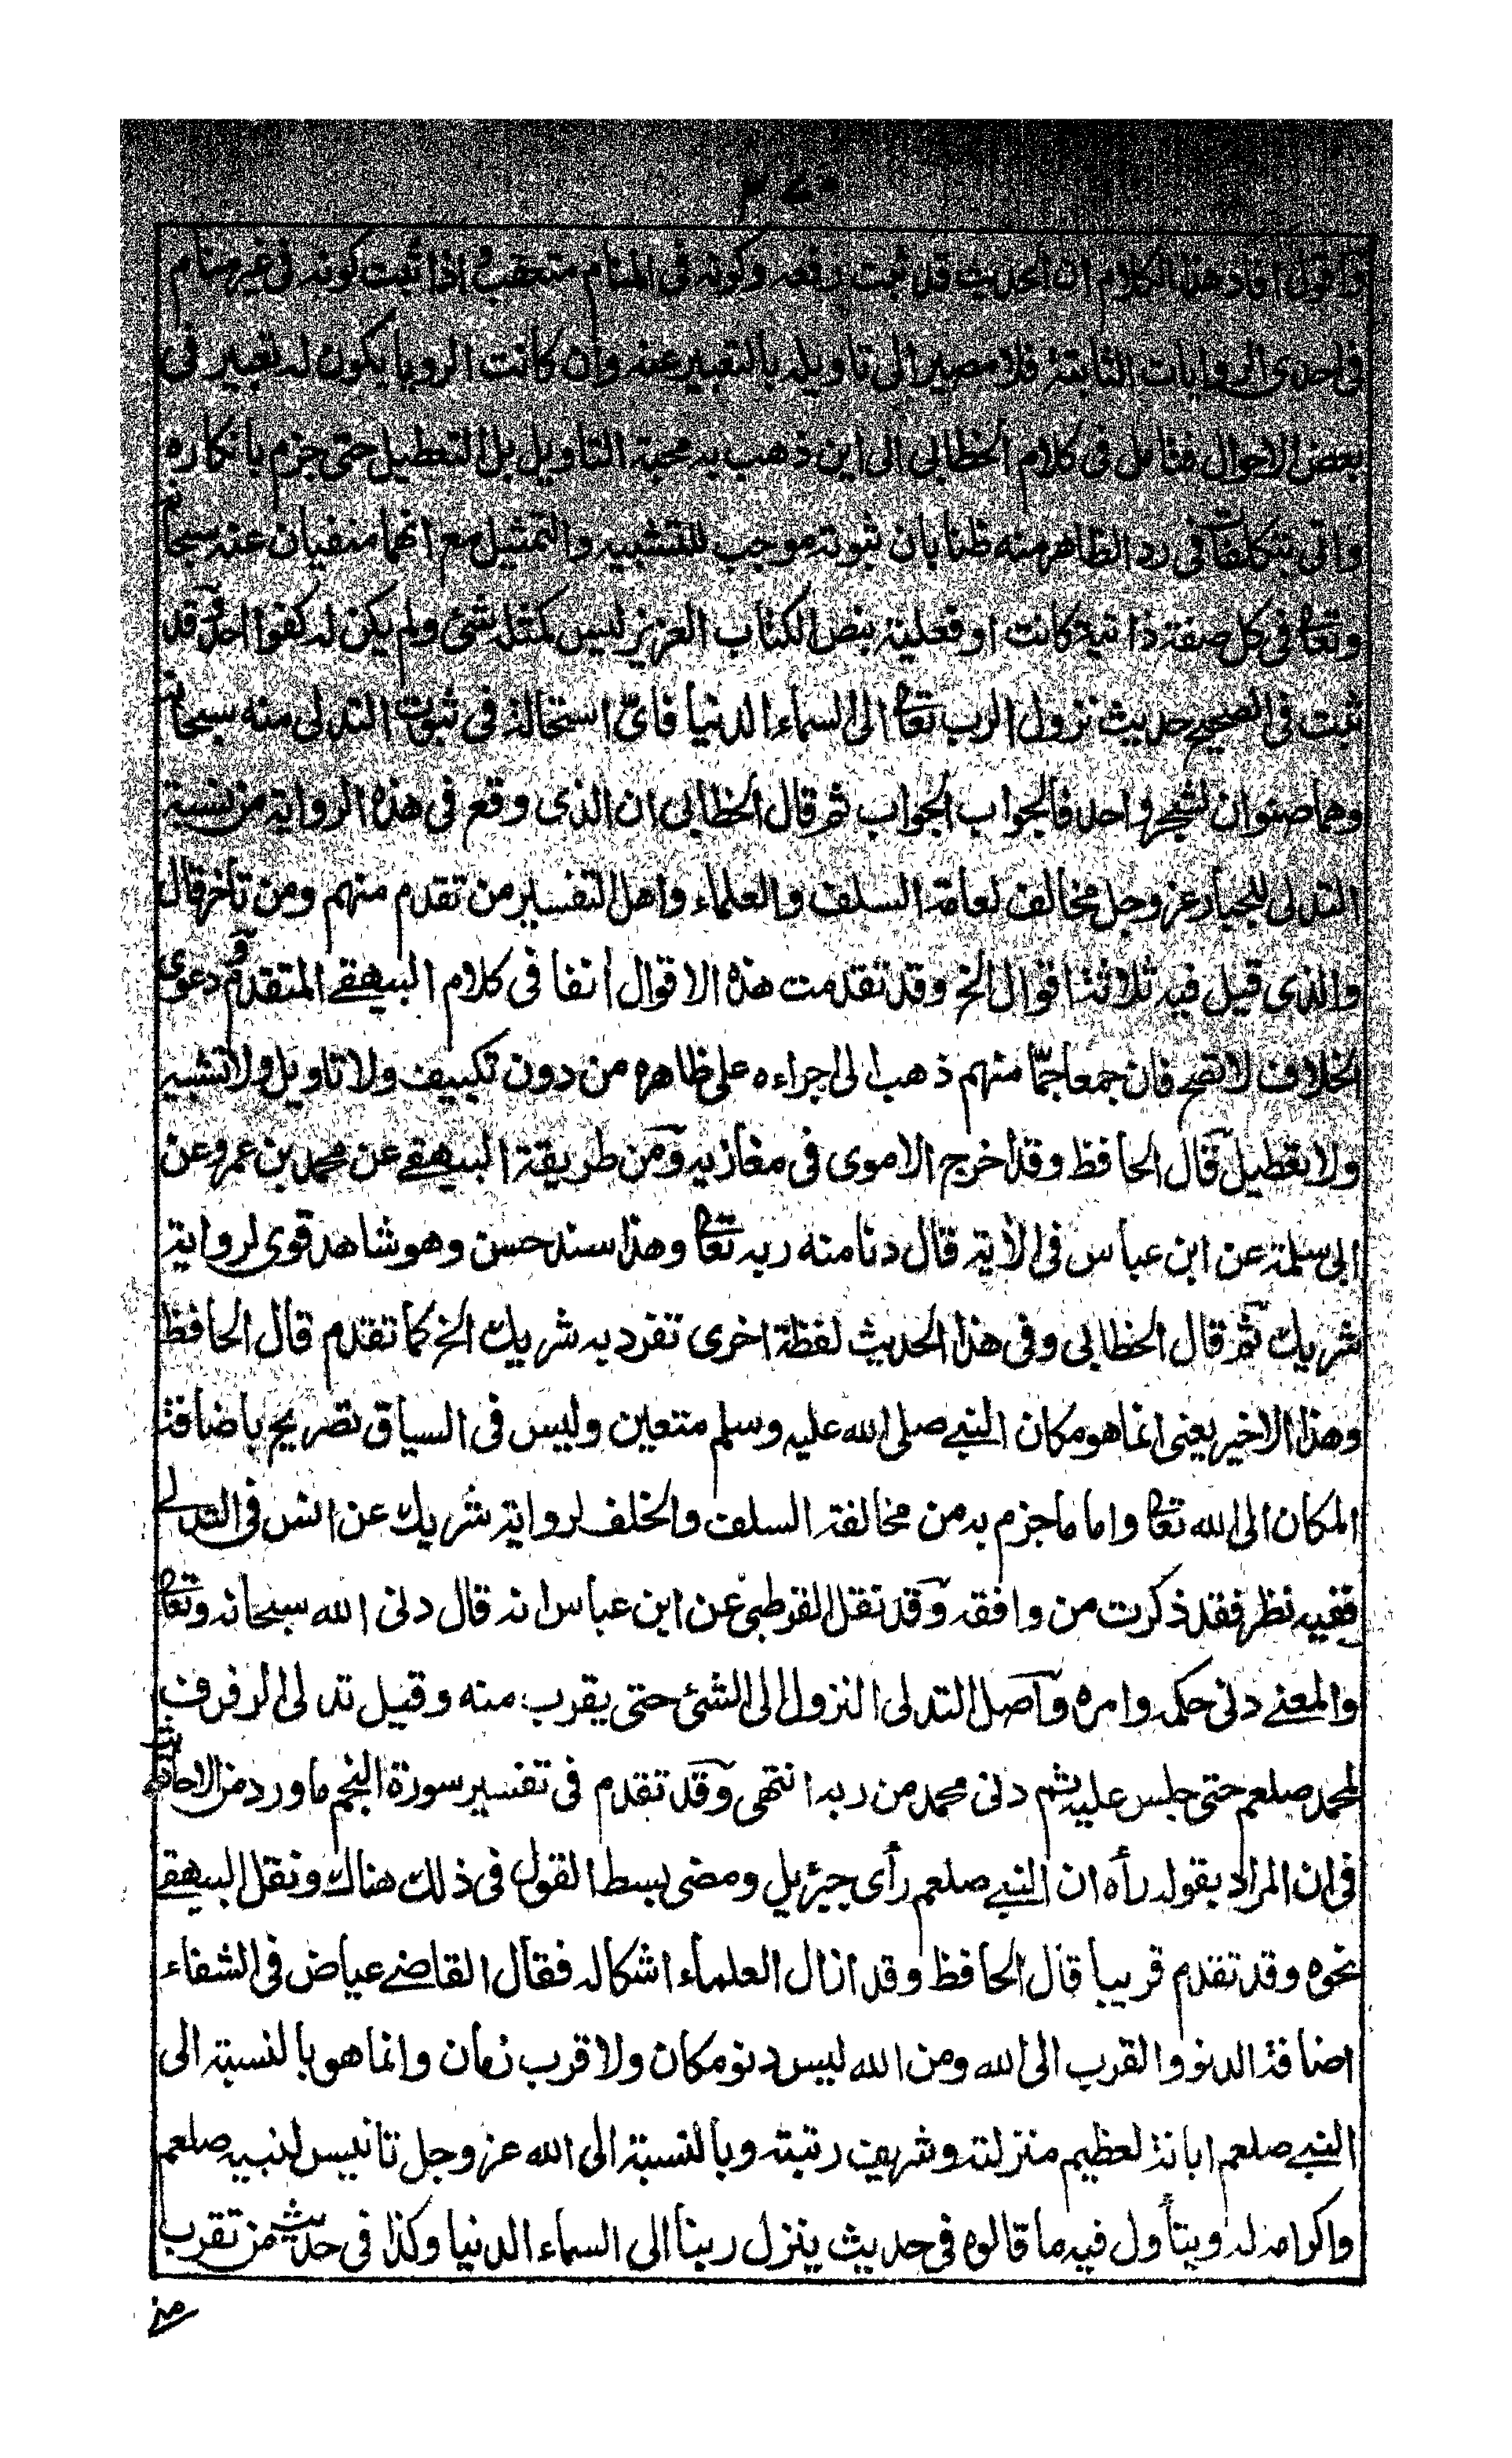 واقول افاد هذا الكلام ان الحديث قد ثبت رفعه وكونه فى المنام متعقب اذا ثبت كونه فى غير منام
فى احدى الروايات الثابتة فلا مصير الى تاويله بالتعبير عنه وان كانت الرويا يكون له تعبير فى
بعض الاحوال فتامل فى كلام الخطابى الى اين ذهب به محبة التاويل بل التعطيل حتى جزم بانكاره
واتى بتكلفات فى رد الظاهر منه ظنا بان ثبوته موجب للتشبيه والتمثيل مع انهما منفيان عنه سبحانه
وتعا فى كل صفة ذاتية كانت او فعلية بنص الكتاب العزيز ليس كمثله شئ ولم يكن له كفوا احد وقد
ثبت فى الصحيح حديث نزول الرب تعا الى السماء الدنيا فاىّ استحالة فى ثبوت التدلى منه سبحانه
وهما صنوان لشجر واحد فالجواب الجواب ثم قال الخطابى ان الذى وقع فى هذه الرواية من نسبة
التدلى للجبار عز وجل مخالف لعامة السلف والعلماء واهل التفسير من تقدم منهم ومن تاخر قال
والذى قيل فيه ثلاثة اقوال الخ وقد تقدمت هذه الاقوال انفا فى كلام البيهقى المتقدم ودعوى
الخلاف لا تصح فان جمعا جمّا منهم ذهب الى اجراءه على ظاهره من دون تكييف ولا تاويل ولا تشبيه
ولا تعطيل قال الحافظ وقد اخرج الاموى فى مغازيه ومن طريقة البيهقى عن محمد بن عمرو عن
ابى سلمة عن ابن عباس فى الاية قال دنا منه ربه تعا وهذا سند حسن وهو شاهد قوى لرواية
شريك ثم قال الخطابى وفى هذا الحديث لفظة اخرى تفرد به شريك الخ كما تقدم قال الحافظ
وهذا الاخير يعنى انما هو مكان النبى صلى الله عليه وسلم متعين وليس فى السياق تصريح باضافة
المكان الى الله تعا واما ما جزم به من مخالفة السلف والخلف لرواية شريك عن انس فى التدلى
ففيه نظر فقد ذكرت من وافقه وقد نقل القرطبى عن ابن عباس انه قال دنى الله سبحانه وتعا
والمعنى دنى حكمه وامره وآصل التدلى النزول الى الشئ حتى يقرب منه وقيل تدلى الرفرف
لمحمد صلعم حتى جلس عليه ثم دنى محمد من ربه انتهى وقد تقدم فى تفسير سورة النجم ما ورد من الاحاديث
فى ان المراد بقوله رأه ان النبى صلعم رأى جبرئيل ومضى بسط القول فى ذلك هناك ونقل البيهقى
نحوه وقد تقدم قريبا قال الحافظ وقد ازال العلماء اشكاله فقال القاضى عياض فى الشفاء
اضافة الدنو والقرب الى الله ومن الله ليس دنو مكان ولا قرب زمان وانما هو بالنسبة الى
النبى صلعم ابانة لعظيم منزلته وشريف رتبته وبالنسبة الى الله عز وجل تانيس لنبيه صلعم
واكرامه له ويتأول فيه ما قالوه فى حديث ينزل ربنا الى السماء الدنيا وكذا فى حديث من تقرب